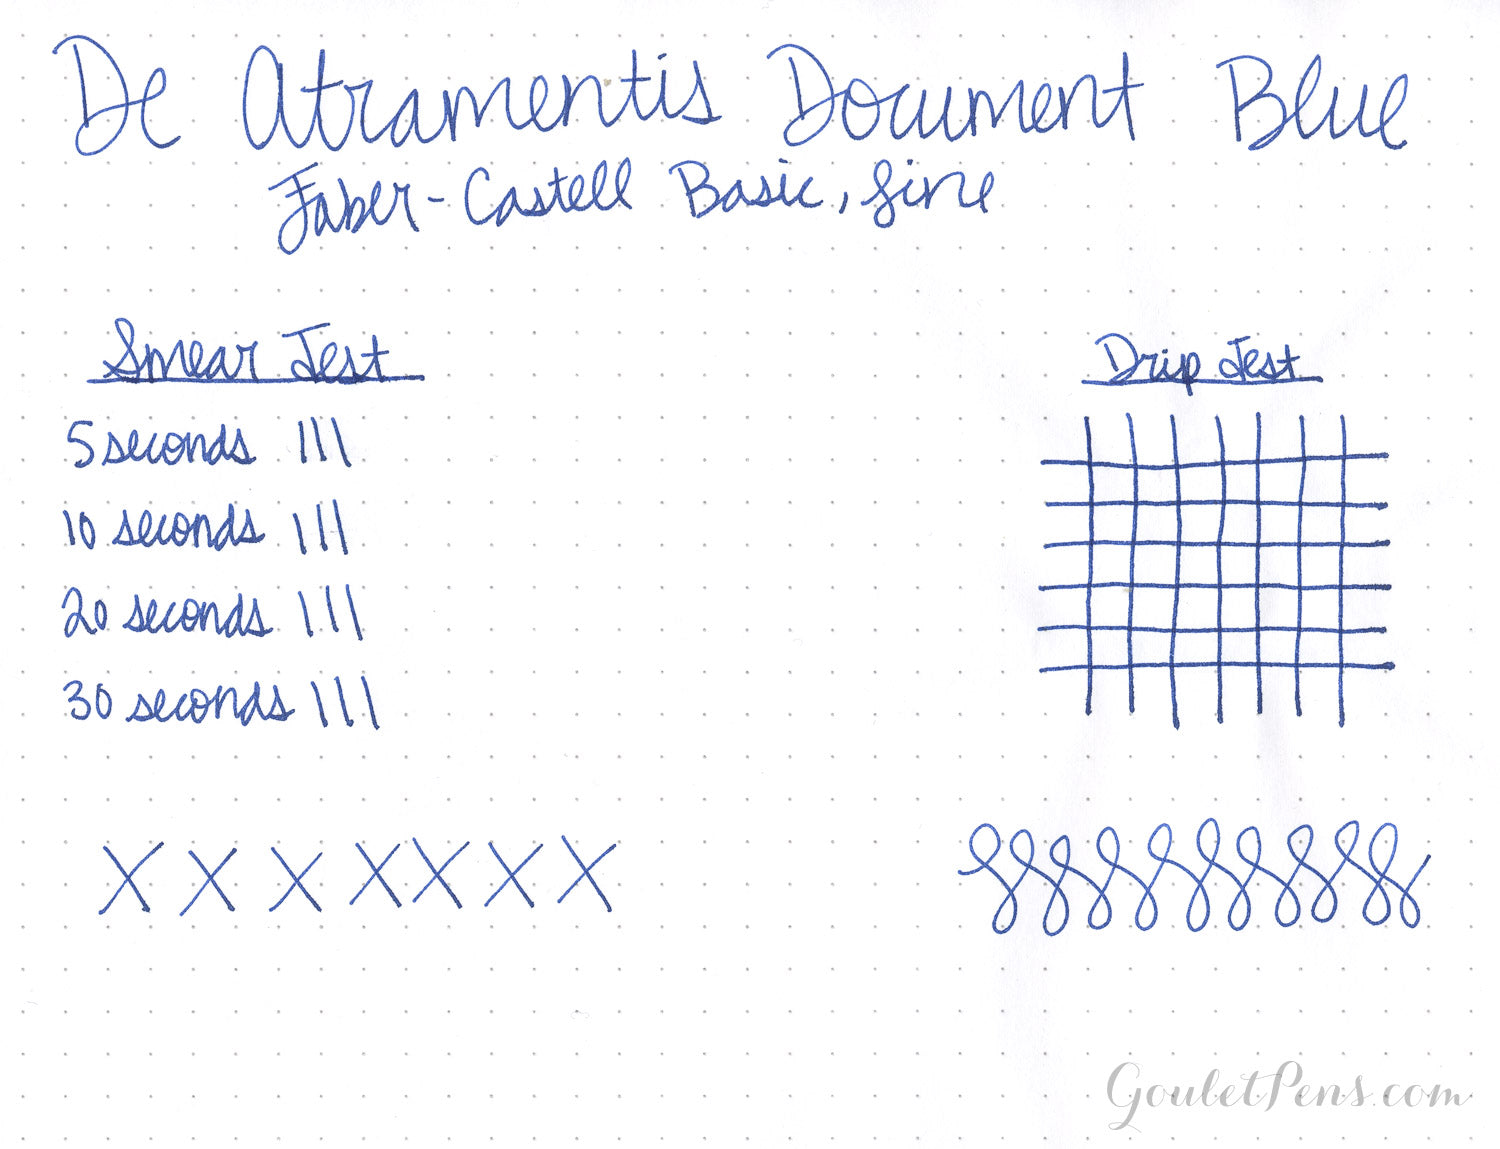 De Atramentis Document Blue
Faber-Castell Basic, fine
Smear Test
5 seconds |||
10 seconds |||
20 seconds |||
30 seconds |||
X X X X X X X
Drip Test
GouletPens.com